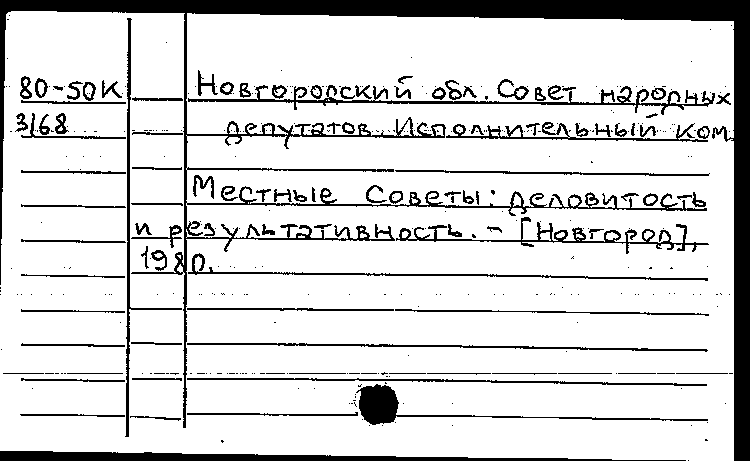 80-50К Новгородский обл. Совет народных
3168 депутатов. Исполнительный ком.
Местные Советы: деловитость
и результативность. - [Новгород],
1980.